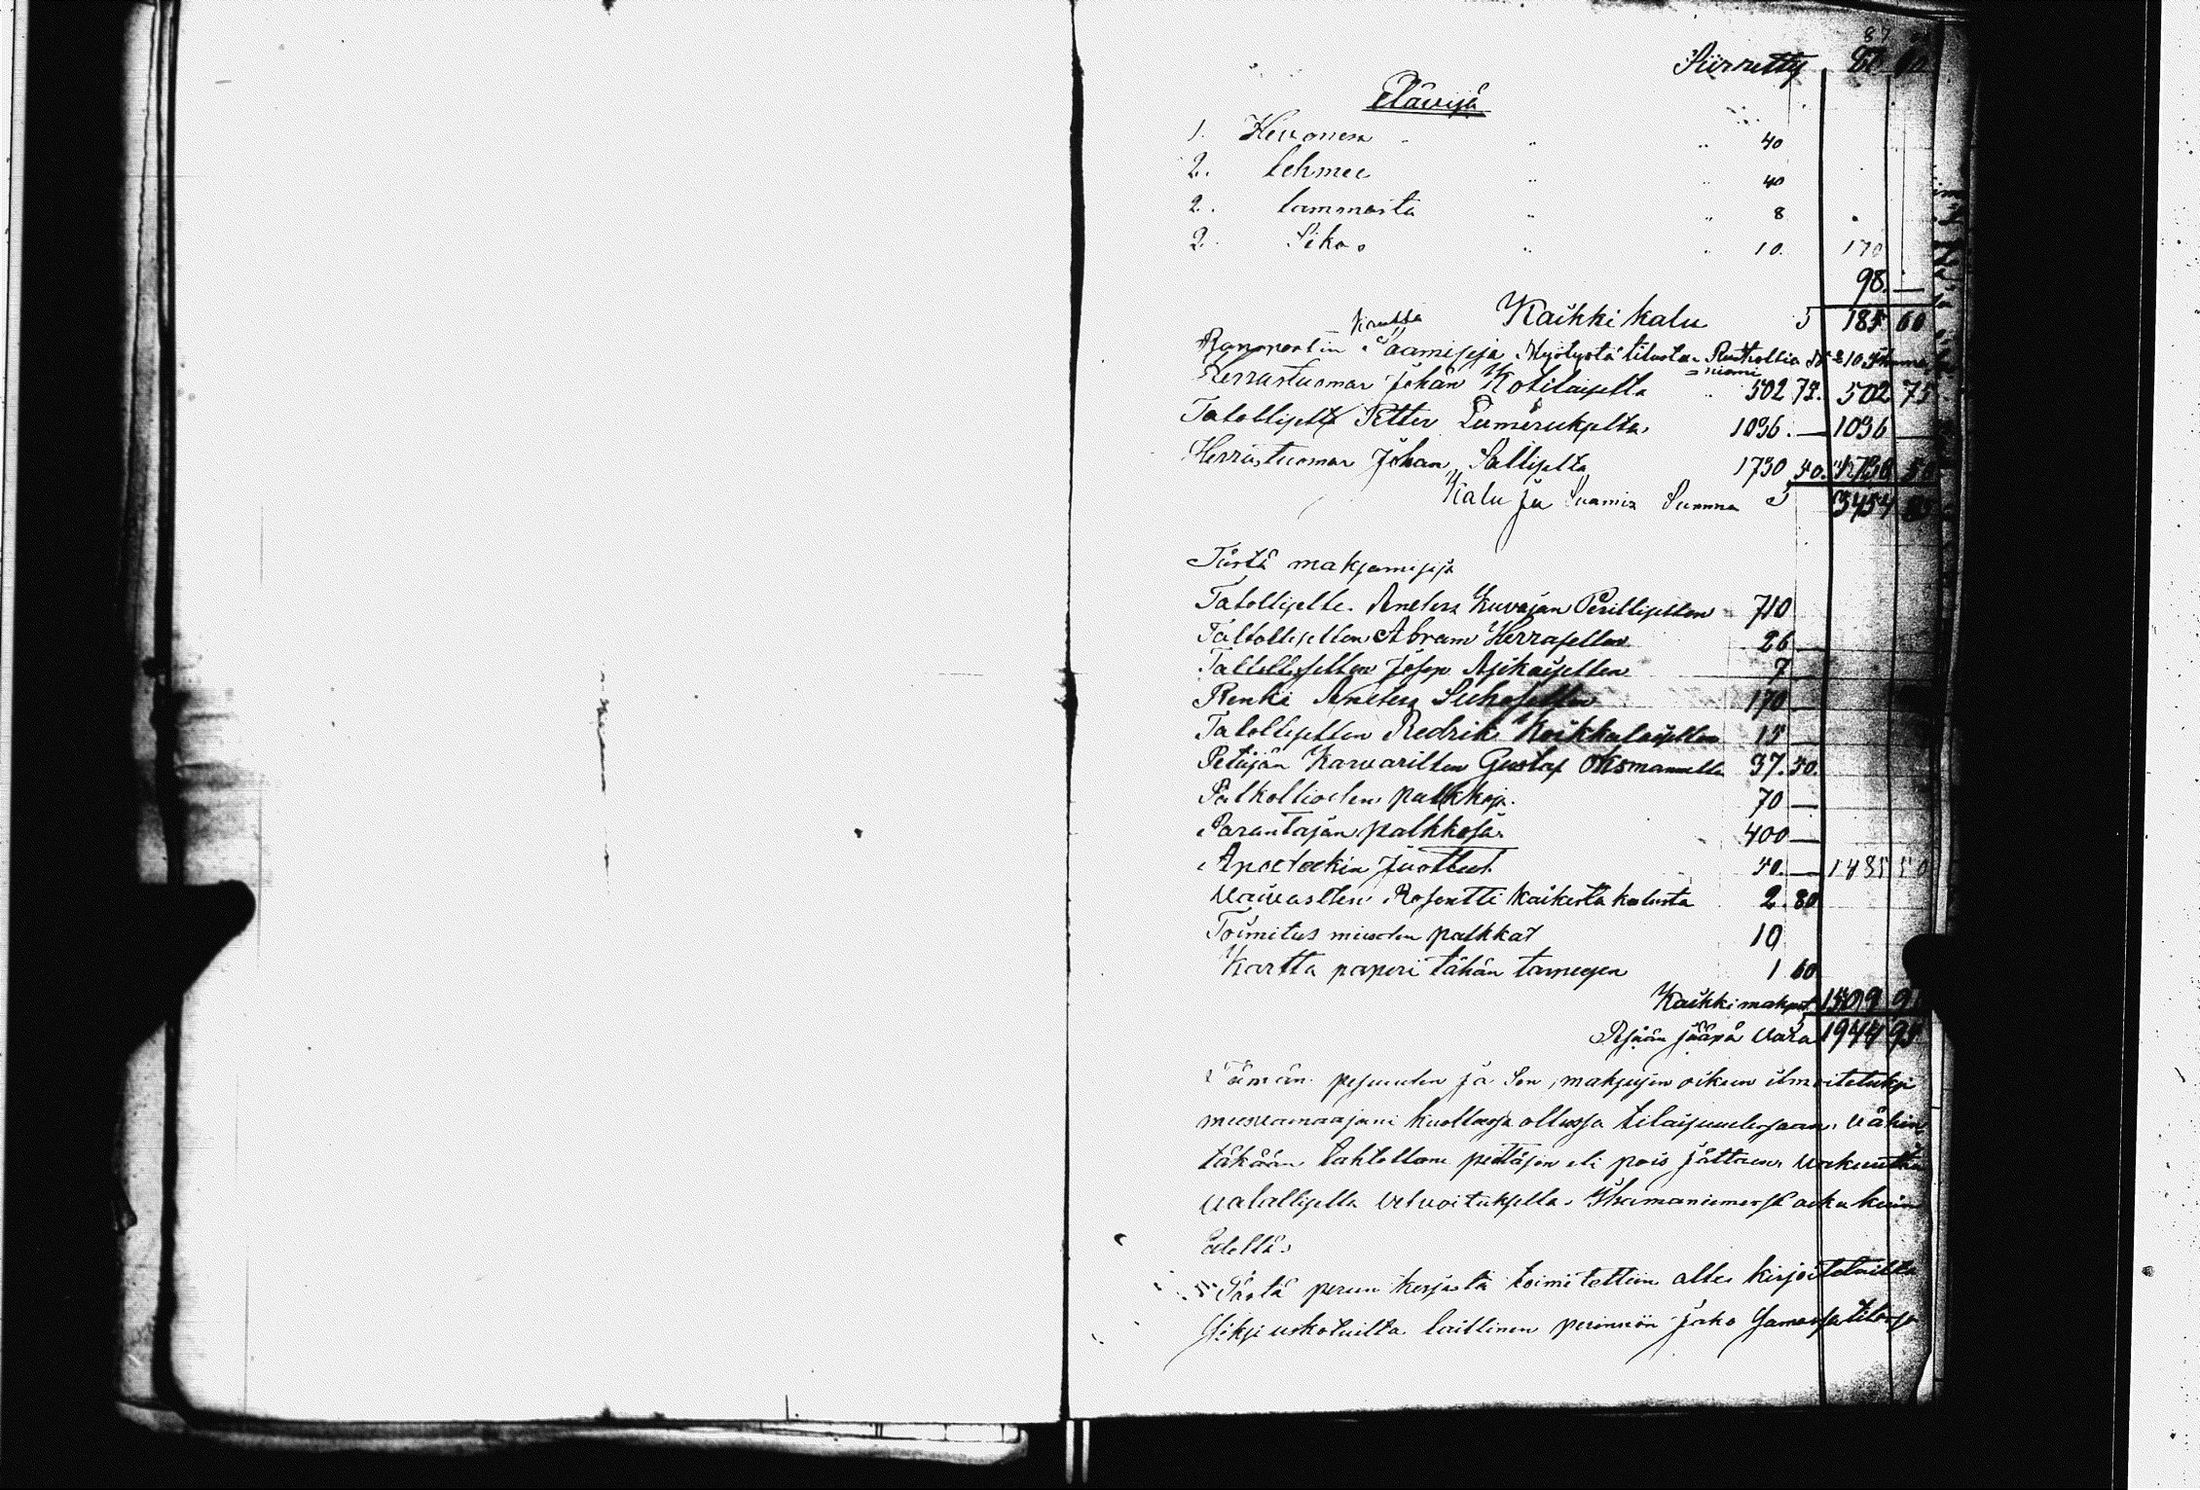 Siirretty 87 60
Elävijä
1. Hevonen " " 40
2. Lehmee " " 40
2. Lammasta " " 8
2. Sikaa " " 10. 170
98. —
Kaikki kalu S 185 60
Saamisija Myötystä tilusta
Herrastuomar Johan Kotilaiselta " 502 75. 502 75
Talollijelta Petter 1096. — 1096 —
Herrastuomar Johan Sallijelta 1730 50. 1730 50
Kalu ja Saamis Summa S 3454 85
Tästä maksamisija
Talollijelle Anders Kuvajan Perillijellen 710
Taltollijellen Abram Herrajellen 26 —
Tallollijellen Josep Asikaijellen 7 —
Renki Anders Suhosellen 170 —
Talollijellen Redrik Koikkalaijellen 15 —
Petäjän Karvarillen Gustaf Oksmannille 37. 50.
Palkollioden palkkoja. 70 —
Parantajan palkkoja. 400 —
Apoteekin juottut 50. — 1485 50
Vaivasten Rosentti kaikesta kalusta 2. 80
Toimitus miesten palkkat 10
Kartta paperi tähän tarveejen 1 60
Kaikki maksut 1509 90
Pesään jääpä vara 1944 95
Tämän pesuuden ja Sen, maksujen oikeen ilmoitetuksi
kuollessa ollessa tilaisuudessaan, vähin
täkään tahtollani peittäjen eli pois jättäen vakuuttaa
valallijella velvoituksella. Ihamaniemessä aika kuin
edellä.
Tästä perun kirjasta toimitettiin alle kirjoitetuilta
Siksi uskotuilta laillinen perinnön jako Samassa tilassa